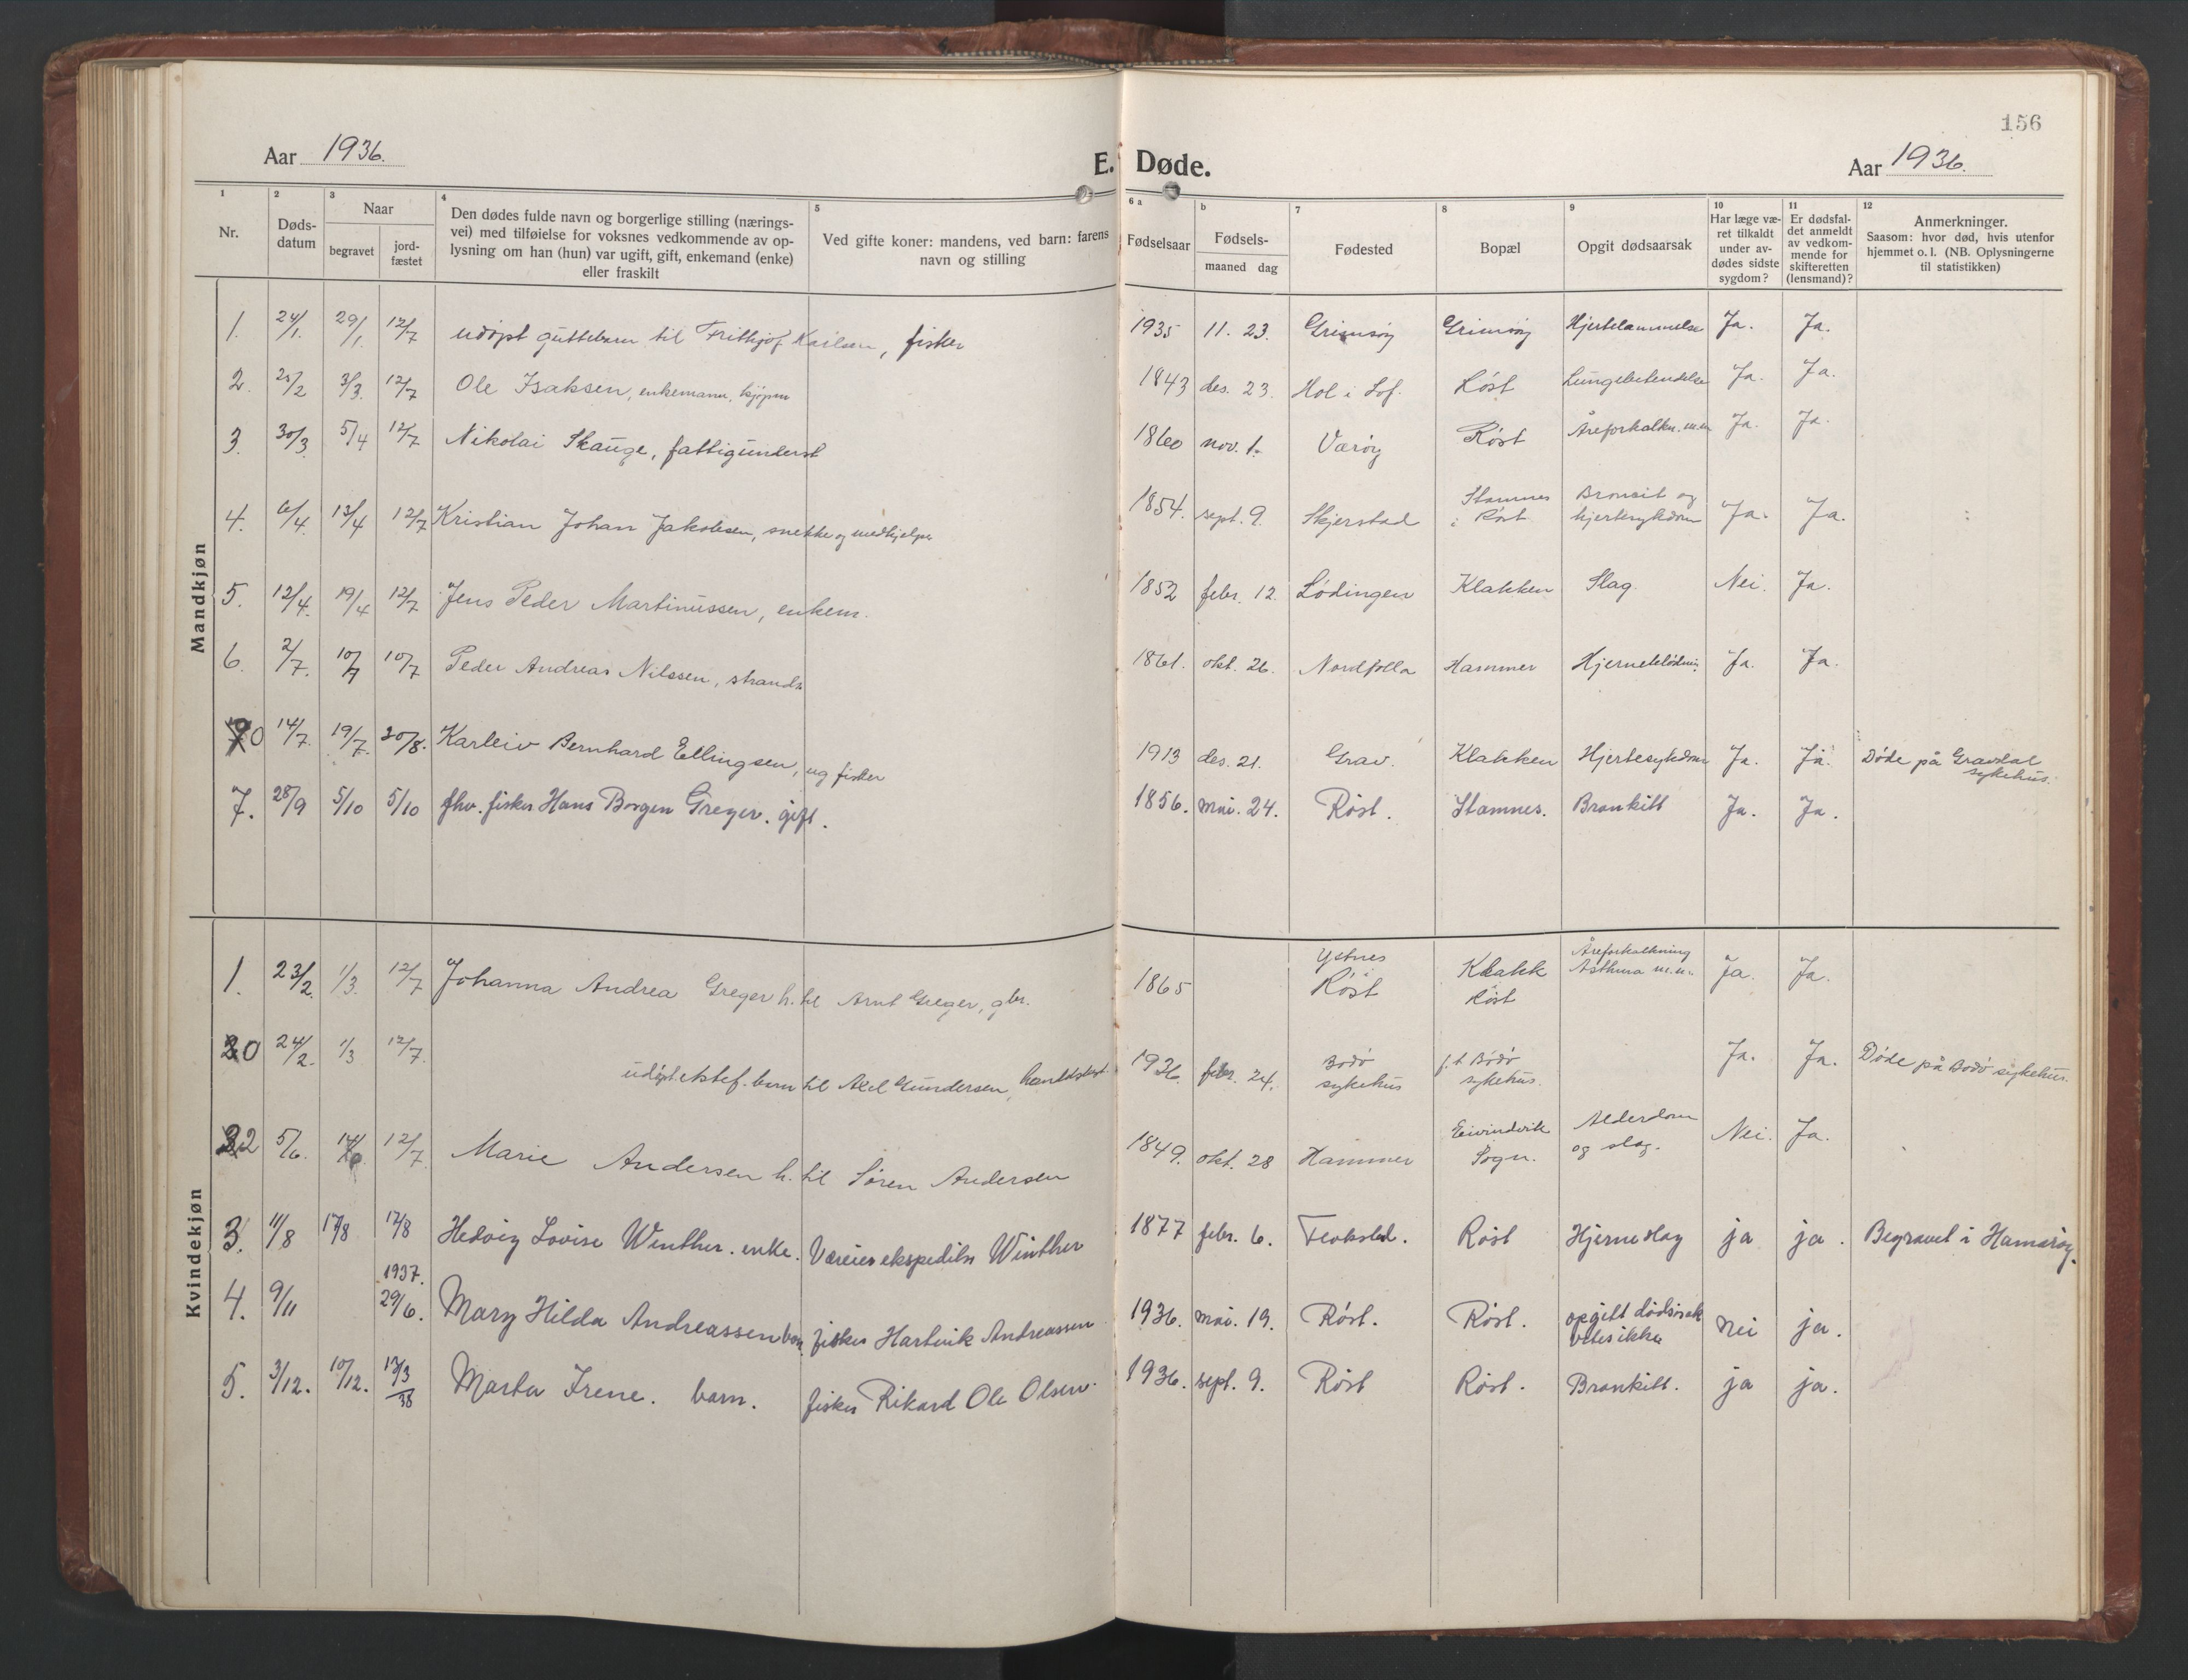 156
Aar 1936.
E. Døde.
Aar 1936.
1 2 3 4 5 6 a b 7 8 9 10 11 12
Nr.
Døds-
datum
Naar
begravet
jord-
fæstet
Den dødes fulde navn og borgerlige stilling (nærings-
vei) med tilføielse for voksnes vedkommende av op-
lysning om han (hun) var ugift, gift, enkemand (enke)
eller fraskilt
Ved gifte koner: mandens, ved barn: farens
navn og stilling
Fødselsaar
Fødsels-
maaned dag
Fødested
Bopæl
Opgit dødsaarsak
Har læge væ-
ret tilkaldt
under av-
dødes sidste
sygdom?
Er dødsfal-
det anmeldt
av vedkom-
mende for
skifteretten
(lensmand)?
Anmerkninger.
Saasom: hvor død, hvis utenfor
hjemmet o. l. (NB. Oplysningerne
til statistikken)
Mandkjøn
1. 24/1. 29/1. 12/7 udøpt guttebarn til Frithjof Karlsen, fisker 1935 11. 23. Grimsøy Grimsøy Hjertelammelse Ja. Ja.
2. 25/2 3/3. 12/7 Ole Isaksen, enkemann, 1843 des. 23. Hol i Lof. Røst Lungebetendelse Ja. Ja.
3. 30/3. 5/4 12/7 Nikolai Skauge, fattigunderst 1860 nov. 1. Værøy Røst Åreforkalkn. m.m Ja. Ja.
4. 6/4. 13/4 12/7 Kristian Johan Jakobsen, snekker og medhjelper 1854. sept. 9. Skjerstad Stamnes i Røst Bronkit og hjertesykdom Ja. Ja.
5. 12/4. 19/4 12/7 Jens Peder Martinussen, enkem. 1852 febr. 12. Lødingen Klakken Slag Nei. Ja.
6. 2/7. 10/7 10/7 Peder Andreas Nilssen, strands 1861. okt. 26. Nordfolla Hammer Hjerneblødnin. Ja. Ja.
0 14/7. 19/7. 20/8. Karleiv Bernhard Ellingsen, ug fisker 1913 des. 21. Grav. Klakken Hjertesykdom Ja. Ja. Døde på Gravdal
sykehus.
7. 28/9 5/10 5/10 fhv. fisker Hans Borgen Greger. gift. 1856. mai. 24. Røst. Stamnes. Bronkitt Ja. Ja.
Kvindekjøn
1. 23/2. 1/3. 12/7 Johanna Andrea Greger h. til Arnt Greger, gbr. 1865 Ystnes Røst Klakk Røst Åreforkalkning Asthma m.m. Ja. Ja.
0 24/2. 1/3 12/7. udøpt ektef. barn til Axel Gundersen, 1936. febr. 24. Bodø sykehus f.t. Bodø sykehus. Ja. Ja. Døde på Bodø sykehus.
2 5/6. 14/6. 12/7. Marie Andersen h. til Søren Andersen 1849. okt. 28 Hammer Eivindvik Sogn. Alderdom og slag. Nei. Ja.
3. 11/8 17/8 17/8 Hedvig Lovise Winther. enke. Væreier ekspeditør Winther 1877 febr. 6. Røst Hjerneslag ja ja. Begravet i Hamarøy.
4. 9/11 1937. 29/6. Mary Hilda Andreassen barn. fisker Hartvik Andreassen 1936. mai. 19. Røst. Røst. opgitt dødsårsak vites ikke nei ja.
5. 3/12. 10/12. 13/3 38 Marta Irene. barn. fisker Rikard Ole Olsen. 1936. sept. 9. Røst Røst. Bronkitt. ja ja.